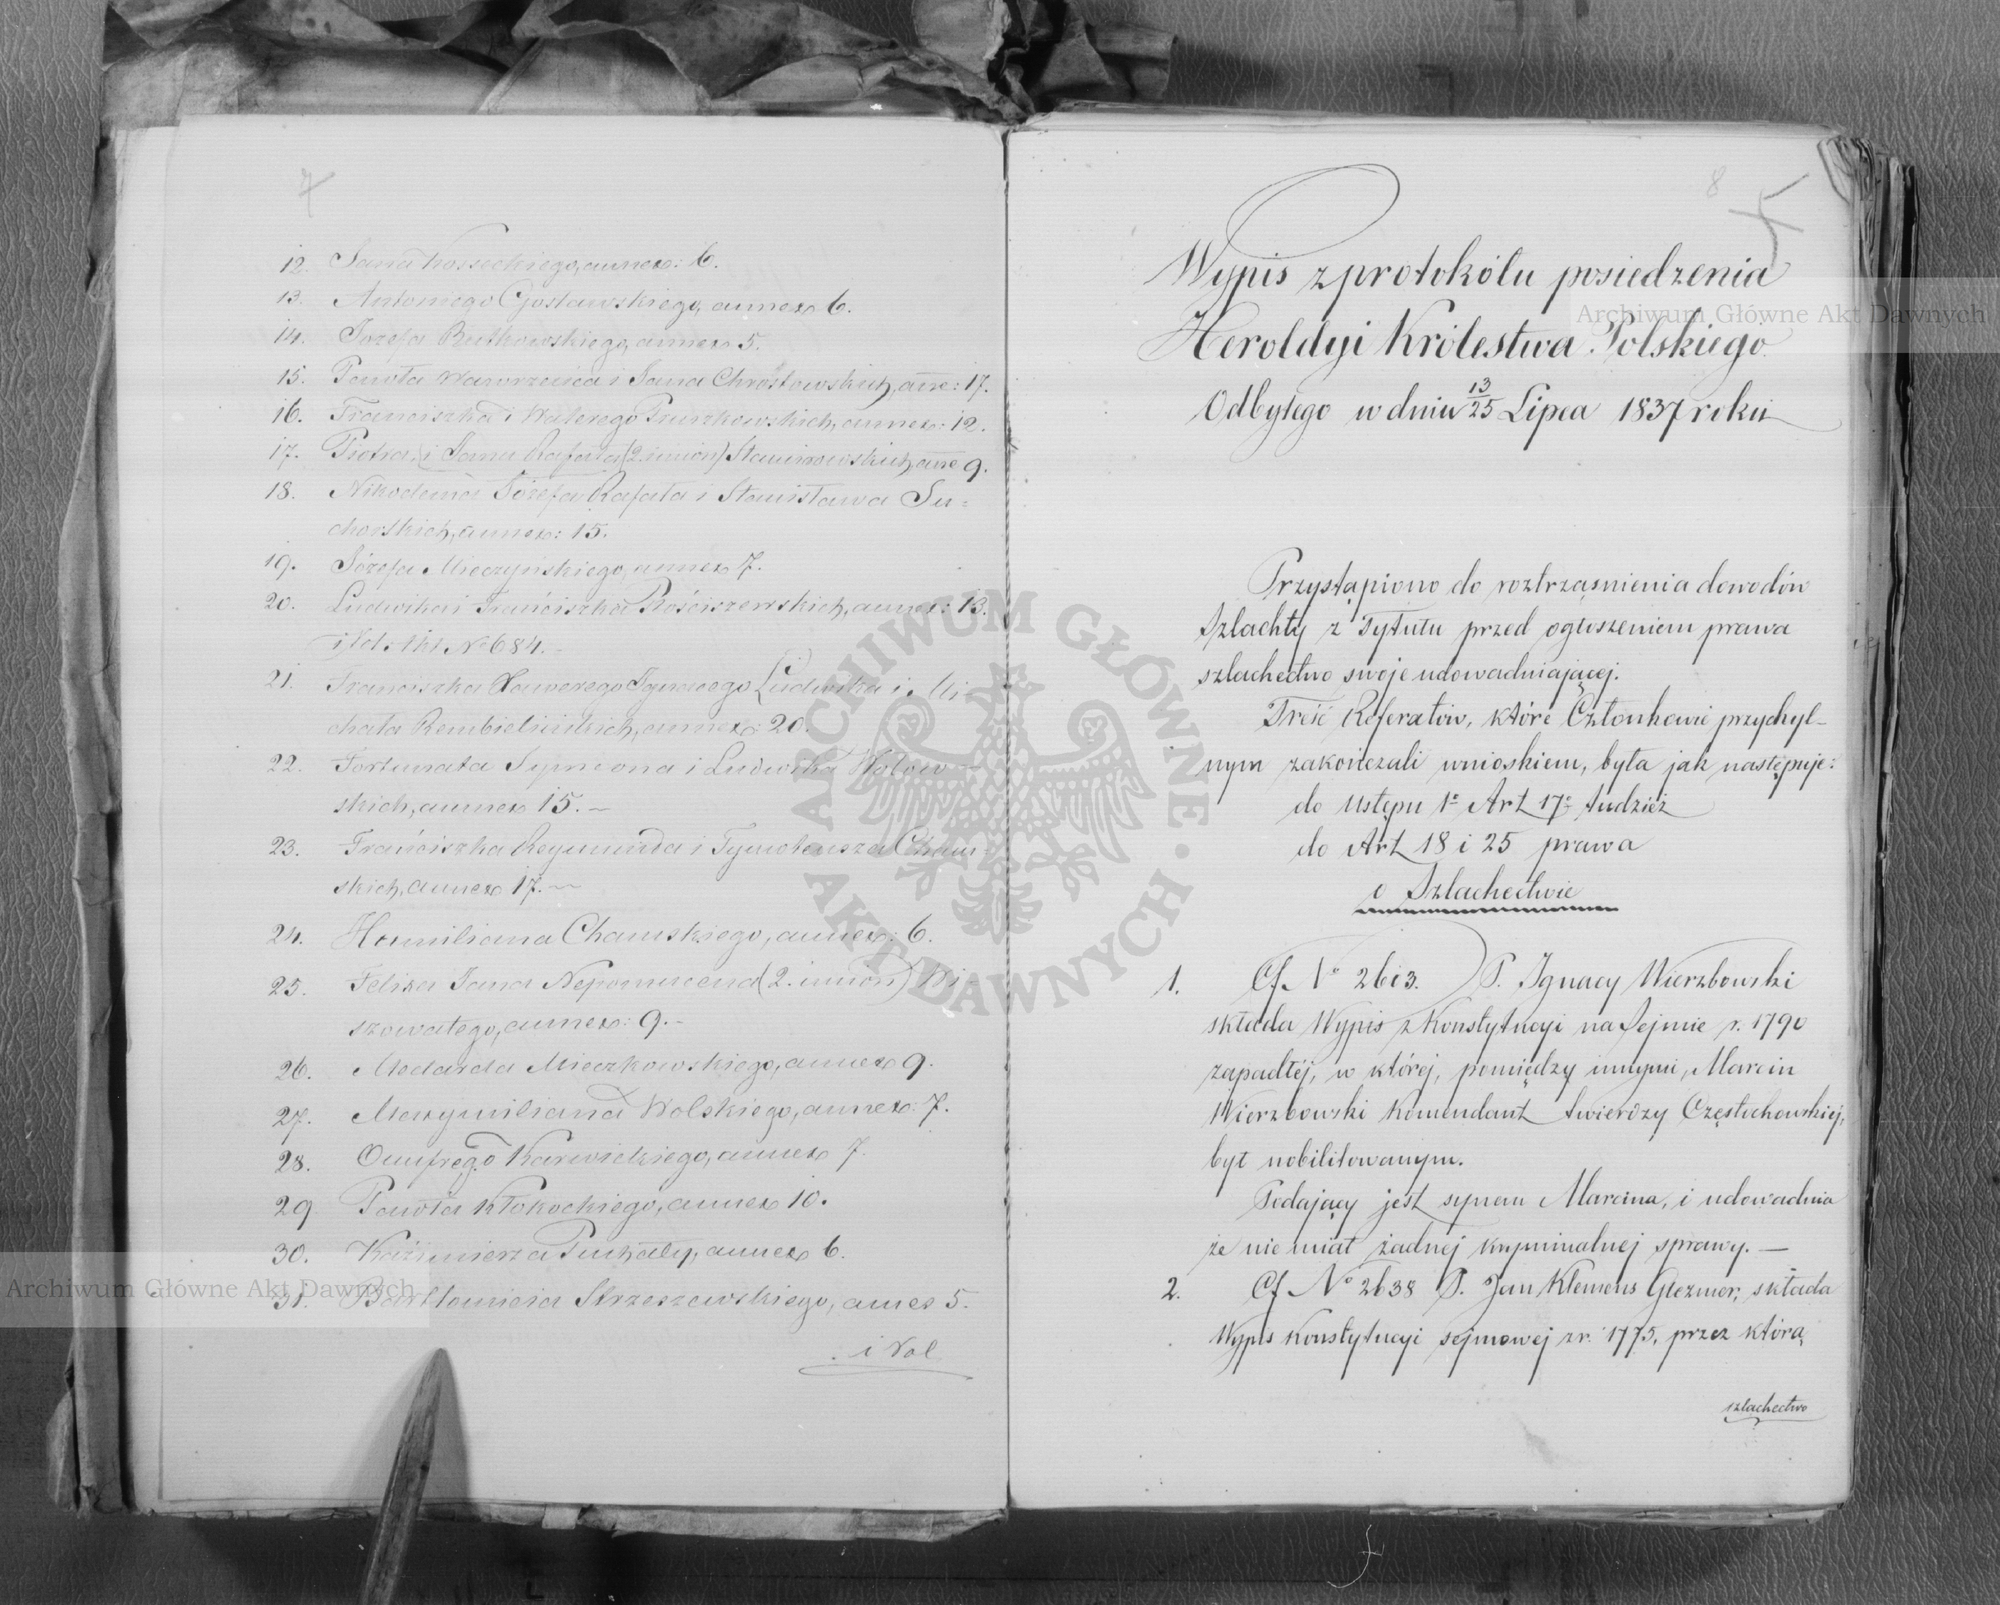 7
12. Jana Kosseckiego, annex: 6.
13. Antoniego Gosławskiego, annex 6.
14. Józefa Rutkowskiego, annex 5.
15. Pawła Wawrzeńca i Jana Chrostowskich, anne: 17.
16. Franciszka i Walerego Pruszkowskich, annex: 12.
17. Piotra, i Jana Rafała (2. imion) Staniszowskich, anne 9.
18. Nikodema Józefa Rafała i Stanisława Su=
chorskich, annex: 15.
19. Józefa Mieczyńskiego, annex 7.
20. Ludwika i Franciszka Rościszewskich, annex: 13.
i Vol. Akt No 684.
21. Franciszka Xawerego Ignacego Ludwika i Mi-
chała Rembielińskich, annex: 20.
22. Fortunata Symeona i Ludwika Wołow-
skich, annex 15. —
23. Franciszka Reymunda i Tymoteusza Cham-
skich, annex 17. —
24. Homiliana Chamskiego, annex: 6.
25. Felixa Jana Nepomucena (2. imion) Wi-
szowatego, annex: 9. -
26. Medarda Mieczkowskiego, annex 9.
27. Maxymiliana Wolskiego, annex: 7.
28. Onufrego Karwickiego, annex 7.
29 Pawła Kłokockiego, annex 10.
30. Kazimierza Puchały, annex 6.
31. Bartłomieja Strzeszewskiego, annex 5.
i Vol
8
Wypis z protokółu posiedzenia
Heroldyi Królestwa Polskiego
Odbytego w dniu 13/25 Lipca 1837 roku
Przystąpiono do roztrząsnienia dowodów
Szlachty z Tytułu przed ogłoszeniem prawa
szlachectwo swoje udowadniającej.
Treść Referatów, które Członkowie przychyl-
nym zakończali wnioskiem, była jak następuje:
do Ustępu 1o Art 17o tudzież
do Art 18 i 25 prawa
o Szlachectwie
1. Cf No 2613. P. Ignacy Wierzbowski
składa Wypis z Konstytucyi na Sejmie r. 1790
zapadłéj, w któréj, pomiędzy innymi, Marcin
Wierzbowski Komendant Twierdzy Częstochowskiej,
był nobilitowanym.
Podający jest synem Marcina, i udowadnia
że nie miał żadnej kryminalnej sprawy. —
2. Cf No 2638 P. Jan Klemens Glezmer, składa
Wypis Konstytucyi sejmowej zr. 1775, przez którą
szlachectwo
Archiwum Główne Akt Dawnych
Archiwum Główne Akt Dawnych
ARCHIWUM GŁÓWNE · AKT DAWNYCH ·